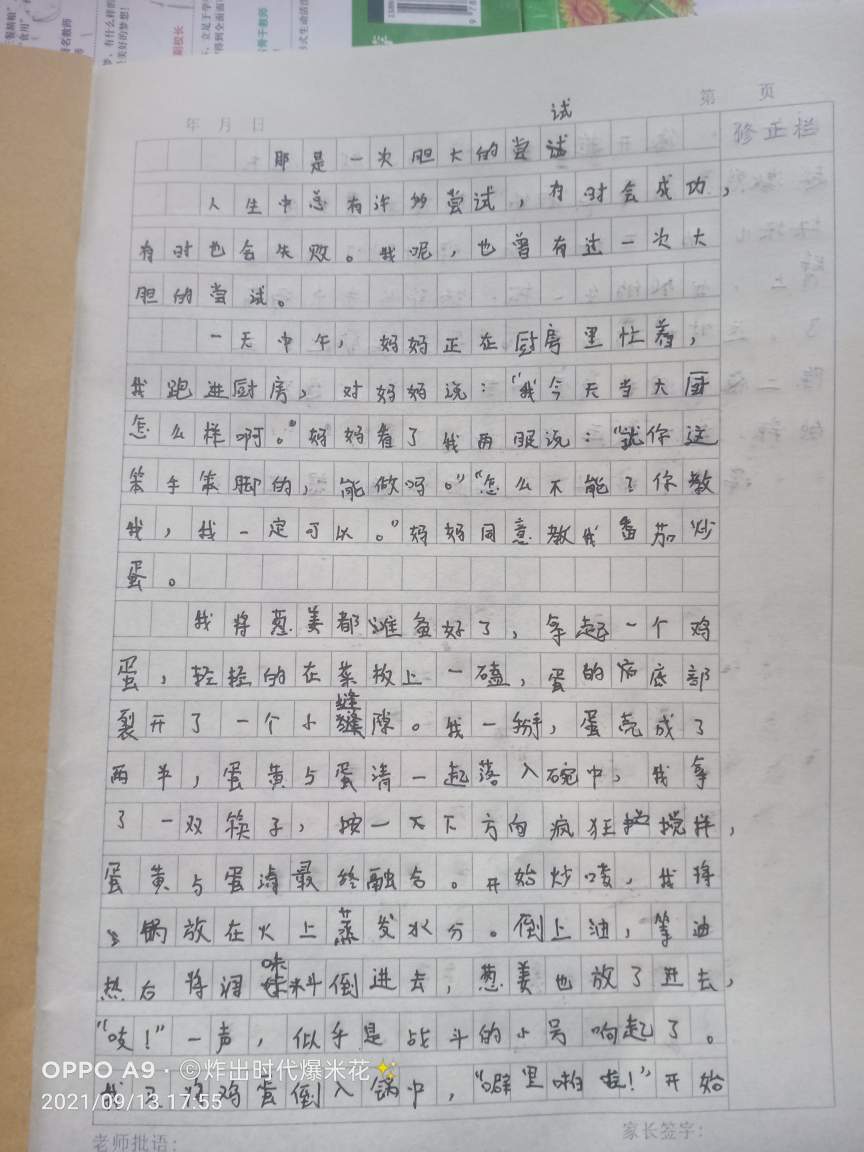 年 月 日
第 页
修正栏
试
那是一次胆大的尝试
人生中总有许多尝试，有时会成功，
有时也会失败。我呢，也曾有过一次大
胆的尝试。
一天中午，妈妈正在厨房里忙着，
我跑进厨房，对妈妈说："我今天当大厨
怎么样啊。"妈妈看了我两眼说："就你这
笨手笨脚的，能做吗。""怎么不能了你教
我，我一定可以。"妈妈同意教我番茄炒
蛋。
我将葱姜都准备好了，拿起一个鸡
蛋，轻轻的在菜板上一磕，蛋的底部
裂开了一个小缝隙。我一掰，蛋壳成了
两半，蛋黄与蛋清一起落入碗中，我拿
了一双筷子，按一下方向疯狂搅拌，
蛋黄与蛋清最终融合。开始炒喽，我将
锅放在火上蒸发水分。倒上油，等油
热后将调味料倒进去，葱姜也放了进去，
"吱！"一声，似乎是战斗的小号响起了。
我将鸡蛋倒入锅中，"噼里啪啦！"开始
老师批语：
家长签字：
OPPO A9 · ©炸出时代爆米花✨
2021/09/13 17:55